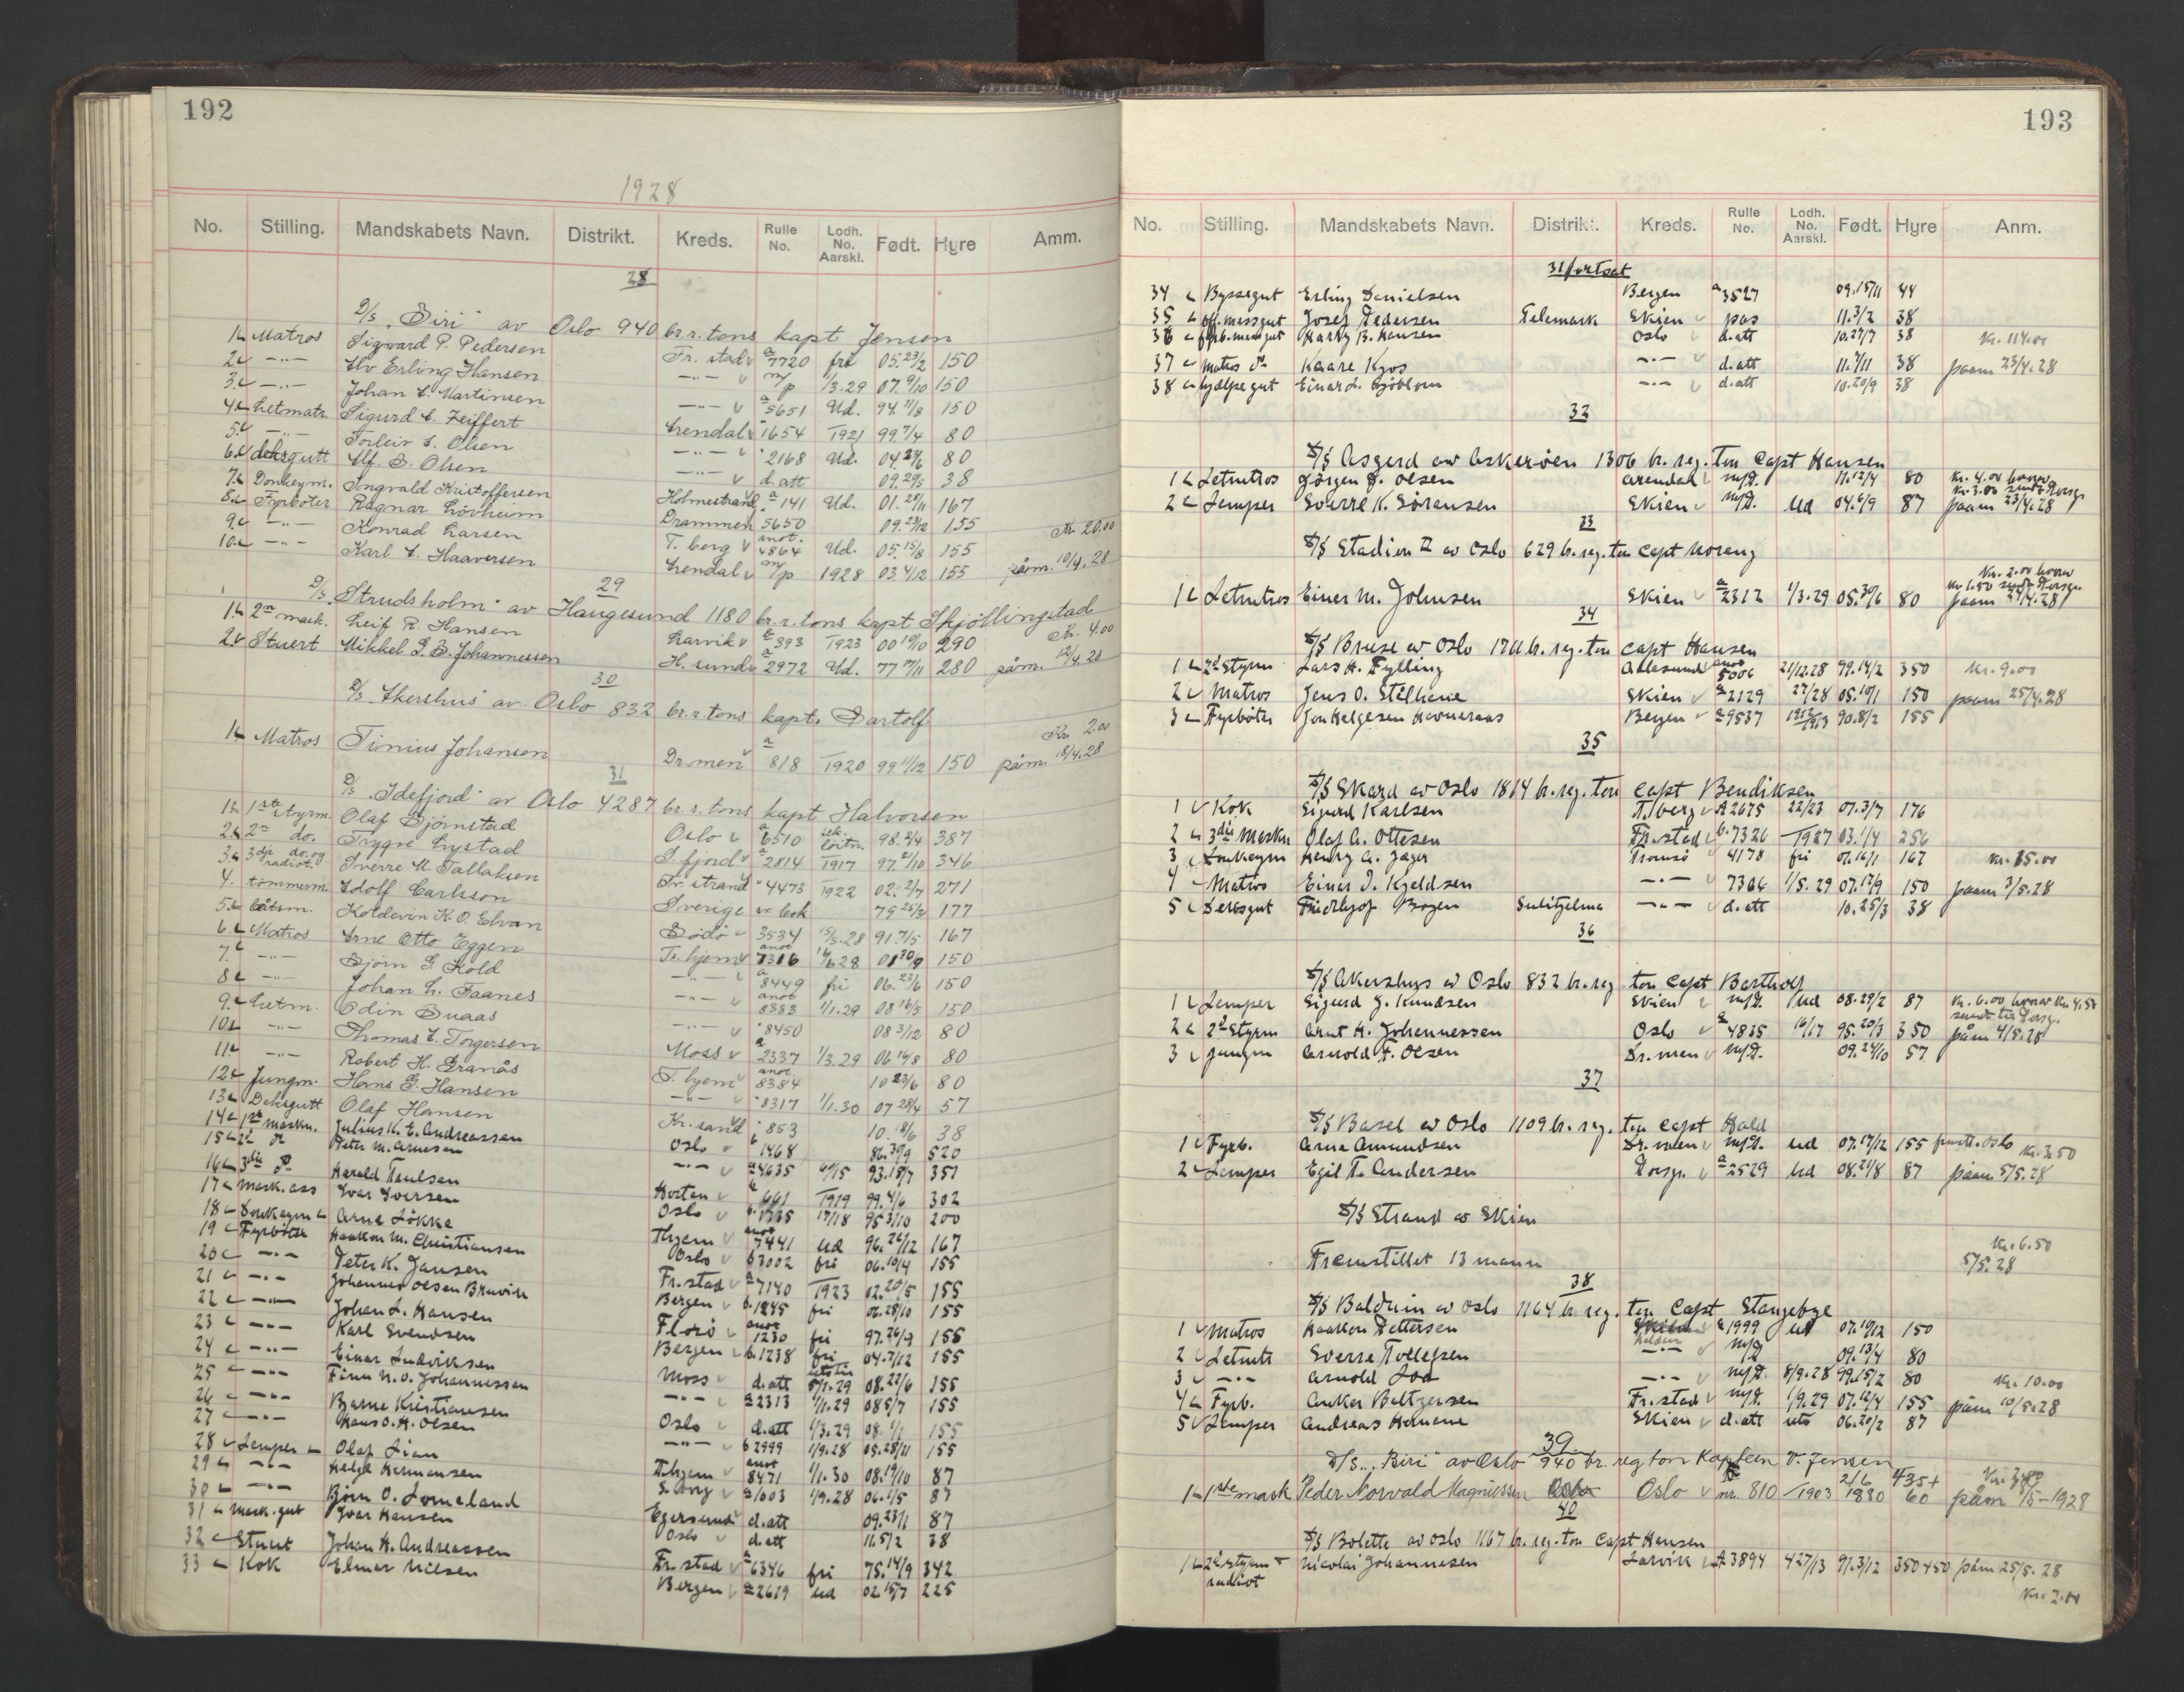 192
1928
No. Stilling. Mandskabets Navn. Distrikt. Kreds. Rulle No. Lodh. No. Aarskl. Født. Hyre Amm.
28
D/s „Siri" av Oslo 940 br.r.tons kapt Jensen
1 Matros Sigvard P. Pedersen Fr.stad a 7720 fri 05.23/2 150
2 —"— Alv Erling Hansen —"— m/p 1/3.29 07 9/10 150
3 —"— Johan E. Martinsen —"— a 5651 Ud. 94.11/8 150
4 Letmatr. Sigurd E. Zeiffert Arendal 1654 1921 99.7/4 80
5 —"— Torleiv S. Olsen —"— 2168 Ud. 04. 80
6 deksgutt Alf. S. Olsen —"— d.att 09.29/5 38
7 Donkeym. Ingvald Kristoffersen Holmestrand a 141 Ud. 01. 167
8 Fyrbøter Ragnar Løvheim Drammen 5650 09 155
9 —"— Konrad Larsen T.berg anot. 4864 Ud. 05.15/8 155 Kr. 20.00
10 —"— Karl E. Haaversen Arendal m/p 1928 03.4/12 155 påm. 10/4.28
29
D/s „Strudsholm" av Haugesund 1180 br.r.tons kapt Skjøllingstad
1 2n mask. Leif R. Hansen Larvik 393 1923 00 19/10 290 Kr. 4.00
2 Stuert Mikkel G.B. Johannessen H.sund a 2972 Ud. 77 280 påm. 12/4.28
30
D/s „Akershus" av Oslo 832 br.r.tons kapt. Bartolf
1 Matros Tinius Johansen Dr.men a 818 1920 99.11/12 150 påm. 18/4.28 Kr 2.00
31
D/s „Idefjord" av Oslo 4287 br.r.tons kapt Halvorsen
1 1ste styrm. Olaf Bjørnstad Oslo a 6510 98.2/4 387
2 2n do. Trygve Lystad S.fjord a 2814 1917 97. 346
3 3dje do. og radiot. Sverre M. Tallaksen Kr.strand 4473 1922 02.2/7 271
4. tømmerm. Adolf Carlsson Sverige sv. bok 79 177
5 båtsm. Koldevin K.O. Elvan Bodø 3534 15/5.28 91.7/5 167
6 Matros Arne Otto Eggen Tr.hjem anot 7316 28 01 150
7 —"— Bjørn G. Kold —"— a 8449 fri 06.23/6 150
8 —"— Johan L. Faanes —"— anot 8383 1/1.29 08 16/5 150
9 Letm. Odin Buaas —"— 8450 08 3/12 80
10 —"— Thomas E. Torgersen Moss a 2337 1/3.29 06 16/8 80
11 —"— Robert H. Granås T.hjem anot 8384 10 23/6 80
12 Jungm. Hans G. Hansen —"— 8317 1/1.30 07 28/4 57
13 Deksgutt Olaf Hansen Kr.sand 853 10.18/6 38
14 1ste maskn. Julius K.E. Andreassen Oslo b 1468 86.30/9 520
15 2d do Peter M. Arnesen —"— a 4635 60/15 93.18/7 351
16 3die do Harald Paulsen Horten 661 1919 99.4/6 302
17 Mask.ass Ivar Iversen Oslo 17/18 95 3/10 200
18 Donkeym Arne Løkke Thjem anot 7441 ud 96.26/12 167
19 Fyrbøter Haakon M. Christiansen Oslo b 3002 fri 06.10/4 155
20 —"— Peter K. Jansen Fr.stad a 7140 1923 02.20/5 155
21 —"— Johannes Olsen Bruvik Bergen b. 1245 fri 06.28/10 155
22 —"— Johan L. Hansen Florø anot 1230 fri 97.26/9 155
23 —"— Karl Svendsen Bergen b. 1238 fri 04.7/12 155
24 —"— Einar Ludviksen Moss d.att 5/1.29 08.22/6 155
25 —"— Finn N.O. Johannessen —"— a 2313 1/1.29 08 5/7 155
26 —"— Bjarne Kristiansen Oslo d.att 1/3.29 08.1/1 155
27 —"— Hans O.H. Olsen —"— b 2999 1/9.28 05.28/11 155
28 Lemper Olaf Lian Thjem anot 8471 1/1.30 08.19/10 87
29 —"— Helge Hermansen S.borg a 1003 1/9.28 06.1/5 87
30 —"— Bjørn O. Lomeland Egersund d.att 09.23/1 87
31 Mask.gut Ivar Hansen Oslo d.att 11.5/2 38
32 Stuert Johan H. Andreassen Fr.stad a 6346 fri 75.14/9 342
33 Kok Elmar Nilsen Bergen a 2619 ud 02.15/7 225
193
No. Stilling. Mandskabets Navn. Distrikt. Kreds. Rulle No. Lodh. No. Aarskl. Født. Hyre Anm.
31 fortsat
34 Byssegut Erling Danielsen Bergen a 3527 09.15/11 44
35 off.messgut Josef Pedersen Telemark Skien pas 11.3/2 38
36 fyrb.messgut Harry B. Hansen Oslo d.att 10.27/7 38 Kr. 114.00
37 matros do Kaare Kjos —"— d.att 11.7/11 38 paam 23/4.28
38 hjælpegut Einar L. Sjöblom —"— d.att 10.20/9 38
32
S/S Asgerd av Askerøen 1306 br.reg.ton Capt Hansen
1 Letmtros Jørgen J. Olsen Arendal m/p. 11.12/4 80 Kr. 4.00 hvorav
2 Lemper Sverre K. Sørensen Skien m/p. Ud 04.6/9 87 Kr. 3.00 sendt Porsgr. paam 23/4.28
33
S/S Stadion II av Oslo 629 br.reg.ton Capt Noreng
1 Letmtros Einer M. Johnsen Skien a 2312 1/3.29 05.30/6 80 Kr. 2.00 hvorav Kr 1.50 sendt Porsgr. paam 24/4.28
34
S/S Bruse av Oslo 1711 br.reg.ton Capt Hansen
1 2d Styrm Lars H. Fylling Aalesund anot 5006 21/12.28 99.14/2 350 Kr. 9.00
2 Matros Jens O. Stellhene Skien a 2129 27/28 05.10/1 150 paam 25/4.28
3 Fyrbøter Jon Helgesen Havneraas Bergen a 9537 90.8/2 155
35
S/S Skard av Oslo 1814 br.reg.ton Capt Bendiksen
1 Kok Sigurd Karlsen T.berg A 2675 22/23 07.3/7 176
2 3die Maskn Olaf A. Ottesen Fr.stad b. 7326 1927 03.1/4 256
3 Donkeym Henry A. Jæger Tromsø 4178 fri 07.16/1 167 Kr. 15.00
4 Matros Einar I. Kjeldsen —"— 7306 1/5.29 07.17/9 150 paam 3/5.28
5 Deksgut Fridthjof Bogen Sulitjelma —"— d.att 10.25/3 38
36
S/S Akershus av Oslo 832 br.reg ton Capt Bartholf
1 Lemper Sigurd J. Knudsen Skien m/p. Ud 08.29/2 87 Kr. 6.00 hvorav Kr 4.50 sendt til Porsgr.
2 2d Styrm Arnt H. Johannessen Oslo a 4835 16/17 95.20/3 350 påm 4/5.28
3 jungm Arnold F. Olsen Dr.men m/p. 09.24/10 57
37
S/S Basel av Oslo 1109 br.reg.ton Capt Hald
1 Fyrb. Arne Amundsen Dr.men m/p. ud 07.17/12 155 Kr. 3.50
2 Lemper Egil T. Andersen Porsgr. a 2529 ud 08.21/8 87 paam 5/5.28
S/S Strand av Skien
Fremstillet 13 mann Kr. 6.50 5/5.28
38
S/S Balduin av Oslo 1164 br.reg.ton Capt Stangebye
1 Matros Haakon Pettersen Skien a 1999 ud 07.19/12 150
2 Letmtr Sverre Tollefsen —"— m/p 09.13/4 80
3 —"— Arnold Loa —"— m/p. 8/9.28 99.15/2 80 Kr. 10.00
4 Fyrb. Anker Baltzersen Fr.stad m/p. 1/9.29 07.12/4 155 påm 10/5.28
5 Lemper Andreas Hanene Skien d.att uts 06.20/2 87
39
D/S. „Biri" av Oslo 940 br.reg ton Kaptein V. Jensen
1 1ste mask Peder Norvald Magnussen Oslo Oslo nr. 810 1903 2/6 1880 435+ 60 påm 1/5-1928
40
S/S Bolette av Oslo 1167 br.reg.ton Capt Hansen
1 2d Styrm + radiot Nicolai Johannesen Larvik A 3894 427/13 91.3/12 350+50 påm 25/5.28
Kr. 2.00